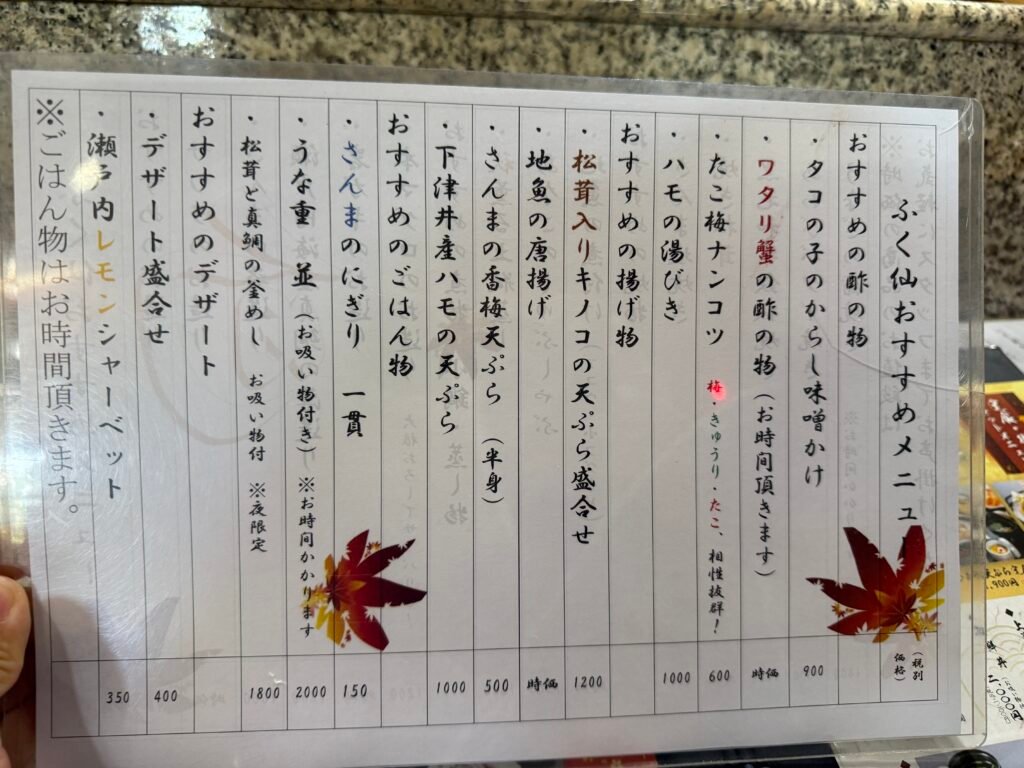 ふく仙おすすめメニュー
(税別価格)
おすすめの酢の物
・タコの子のからし味噌かけ 900
・ワタリ蟹の酢の物(お時間頂きます) 時価
・たこ梅ナンコツ 梅・きゅうり・たこ、相性抜群! 600
・ハモの湯びき 1000
おすすめの揚げ物
・松茸入りキノコの天ぷら盛合せ 1200
・地魚の唐揚げ 時価
・さんまの香梅天ぷら(半身) 500
・下津井産ハモの天ぷら 1000
おすすめのごはん物
・さんまのにぎり 一貫 150
・うな重 並(お吸い物付き)※お時間かかります 2000
・松茸と真鯛の釜めし お吸い物付 ※夜限定 1800
おすすめのデザート
・デザート盛合せ 400
・瀬戸内レモンシャーベット 350
※ごはん物はお時間頂きます。